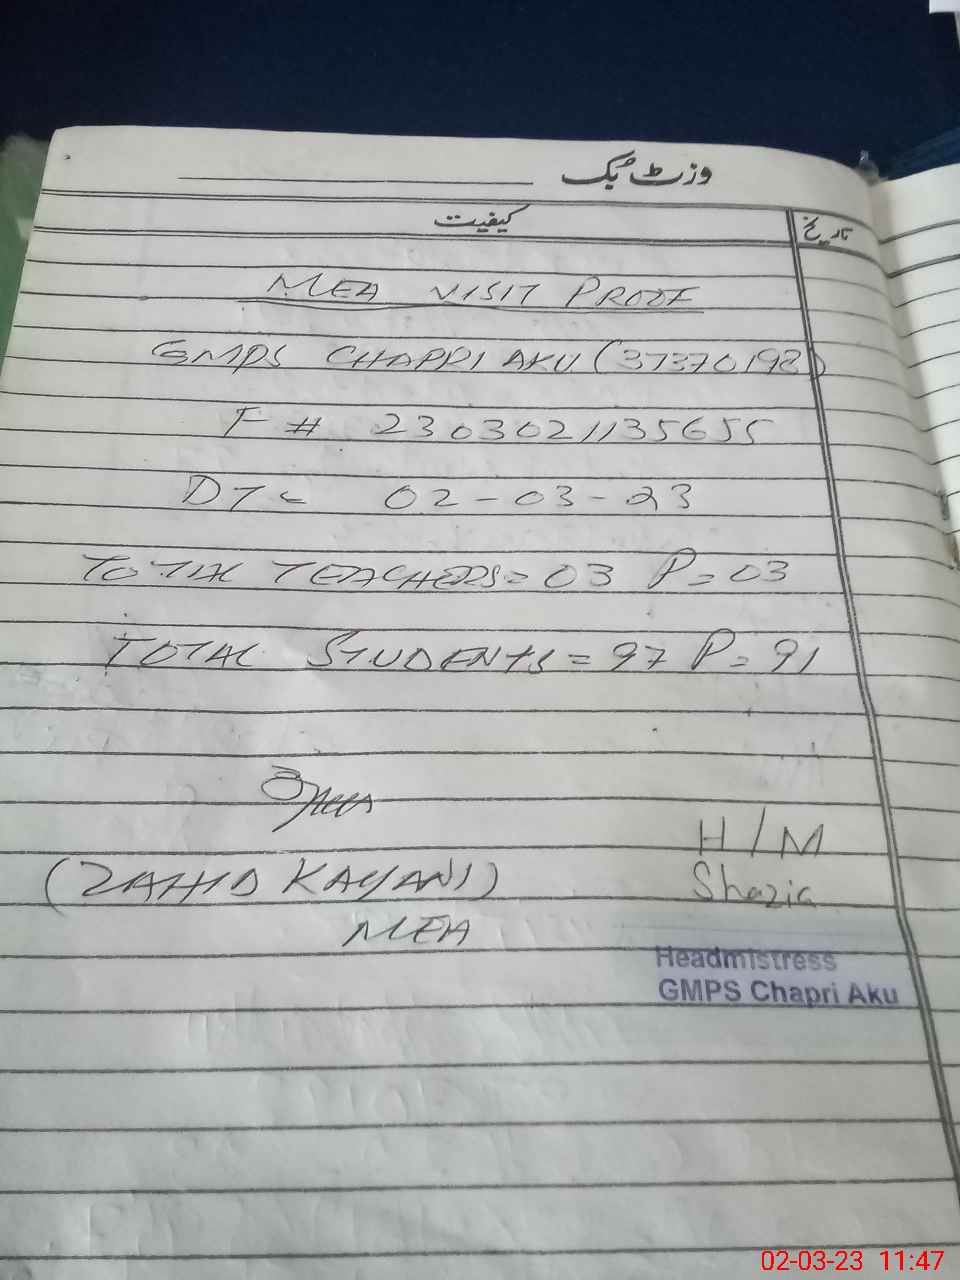 وزٹ بُک
کیفیت
تاریخ
MEA VISIT PROOF
GMPS CHAPRI AKU (37370198)
F # 2303021135655
DT: 02-03-23
TOTAL TEACHERS = 03 P = 03
TOTAL STUDENTS = 97 P = 91
(ZAHID KAYANI)
MEA
H/M
Shazia
Headmistress
GMPS Chapri Aku
02-03-23 11:47